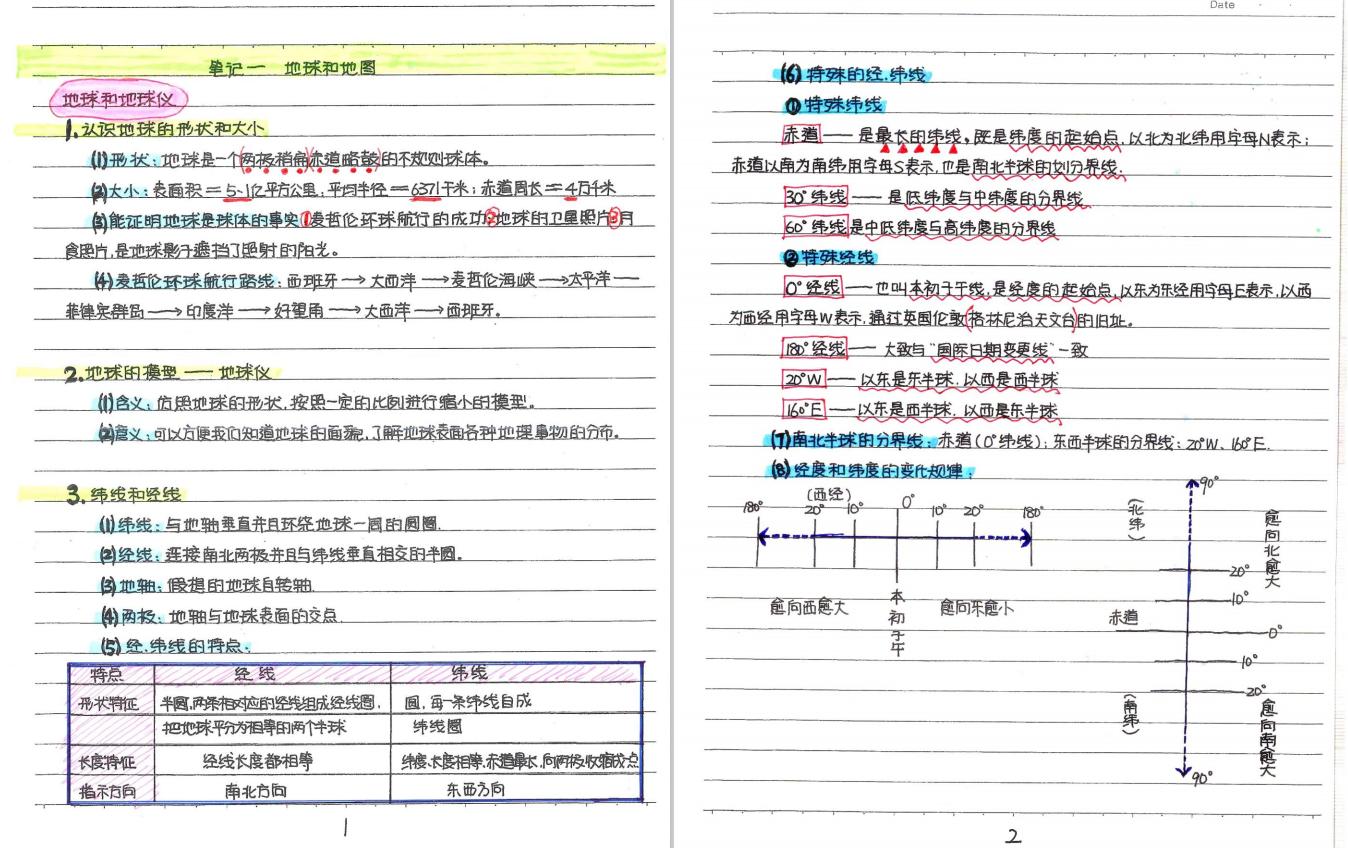 笔记一 地球和地图
地球和地球仪
1.认识地球的形状和大小
(1)形状:地球是一个(两极稍扁)(赤道略鼓)的不规则球体。
(2)大小:表面积=5.1亿平方公里;平均半径=6371千米;赤道周长=4万千米
(3)能证明地球是球体的事实①麦哲伦环球航行的成功②地球的卫星照片③月
食照片,是地球影子遮挡了照射的阳光。
(4)麦哲伦环球航行路线:西班牙→大西洋→麦哲伦海峡→太平洋—
菲律宾群岛→印度洋→好望角→大西洋→西班牙。
2.地球的模型——地球仪
(1)含义:仿照地球的形状,按照一定的比例进行缩小的模型。
(2)意义:可以方便我们知道地球的面貌,了解地球表面各种地理事物的分布。
3.纬线和经线
(1)纬线:与地轴垂直并且环绕地球一周的圆圈.
(2)经线:连接南北两极并且与纬线垂直相交的半圆。
(3)地轴:假想的地球自转轴.
(4)两极:地轴与地球表面的交点.
(5)经.纬线的特点.
特点 经线 纬线
形状特征 半圆,两条相对应的经线组成经线圈, 圆,每一条纬线自成
把地球平分为相等的两个半球 纬线圈
长度特征 经线长度都相等 纬度.长度相等.赤道最长,向两极收缩成点
指示方向 南北方向 东西方向
1
Date
(6)特殊的经.纬线
①特殊纬线
赤道——是最长的纬线,既是纬度的起始点,以北为北纬用字母N表示;
赤道以南为南纬用字母S表示,也是南北半球的划分界线.
30°纬线——是低纬度与中纬度的分界线
60°纬线是中低纬度与高纬度的分界线
②特殊经线
0°经线——也叫本初子午线,是经度的起始点,以东为东经用字母E表示,以西
为西经用字母W表示,通过英国伦敦(格林尼治天文台)的旧址。
180°经线——大致与"国际日期变更线"一致
20°W——以东是东半球.以西是西半球
160°E——以东是西半球.以西是东半球
(7)南北半球的分界线:赤道(0°纬线);东西半球的分界线:20°W、160°E.
(8)经度和纬度的变化规律:
(西经)
180° 20° 10° 0° 10° 20° 180°
愈向西愈大
本初子午
愈向东愈小
90°
(北纬)
愈向北愈大
20°
10°
赤道
0°
10°
20°
(南纬)
愈向南愈大
90°
2